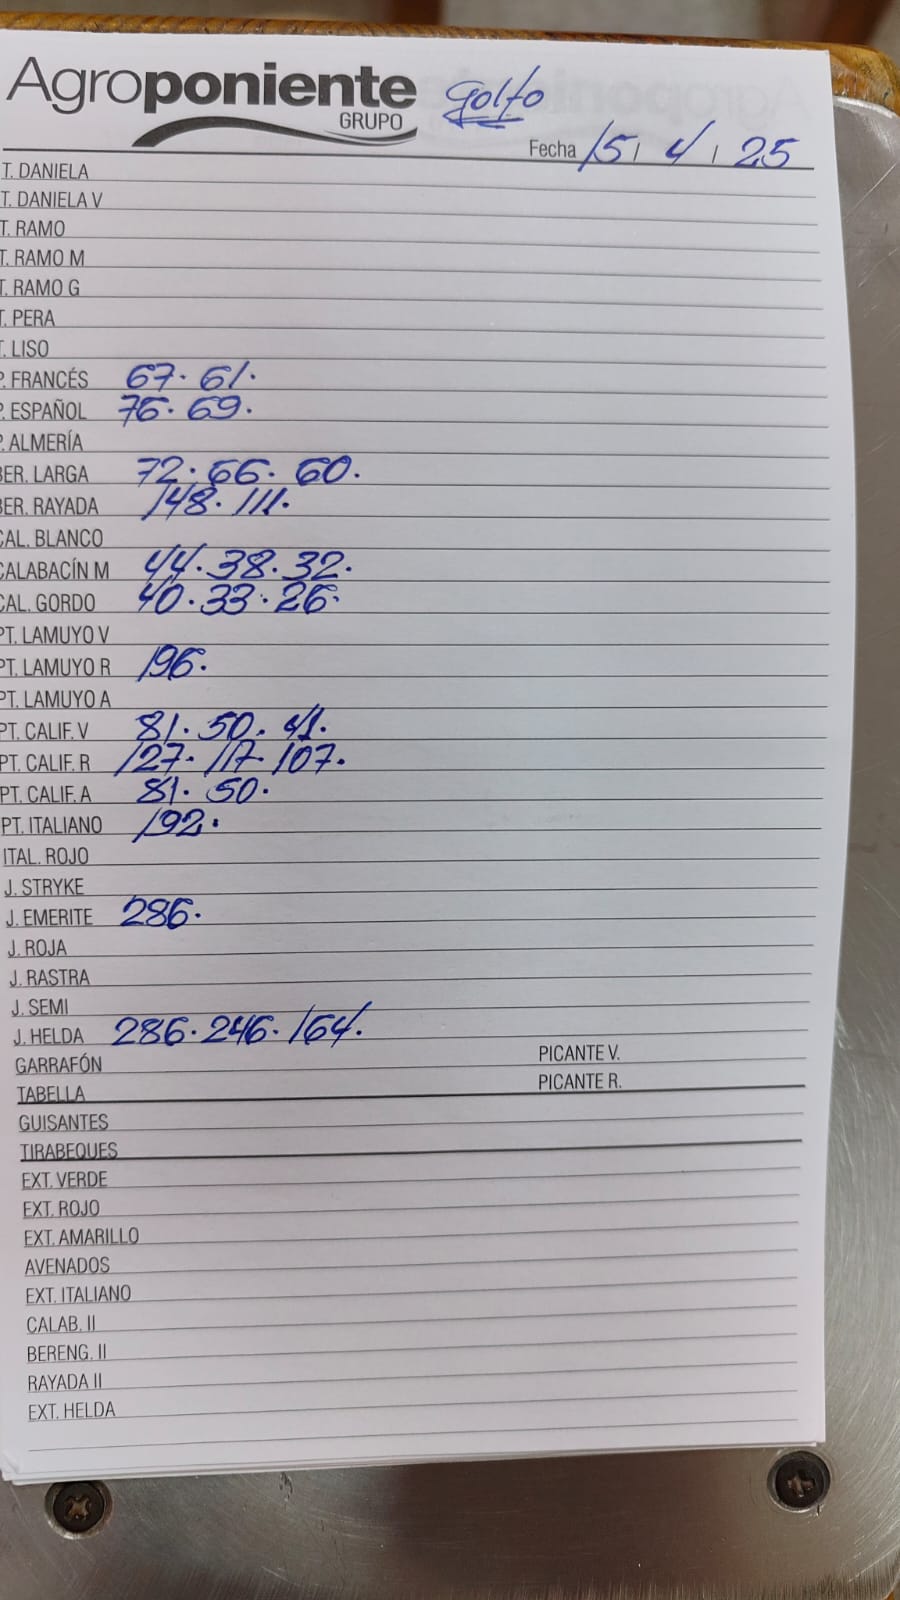 Agroponiente
GRUPO
Golfo
Fecha 15 / 4 / 25
T. DANIELA
T. DANIELA V
T. RAMO
T. RAMO M
T. RAMO G
T. PERA
T. LISO
P. FRANCÉS 67. 61.
P. ESPAÑOL 76. 69.
P. ALMERÍA
BER. LARGA 72. 66. 60.
BER. RAYADA 148. 111.
CAL. BLANCO
CALABACÍN M 44. 38. 32.
CAL. GORDO 40. 33. 26.
PT. LAMUYO V
PT. LAMUYO R 196.
PT. LAMUYO A
PT. CALIF. V 81. 50. 41.
PT. CALIF. R 127. 117. 107.
PT. CALIF. A 81. 50.
PT. ITALIANO 192.
ITAL. ROJO
J. STRYKE
J. EMERITE 286.
J. ROJA
J. RASTRA
J. SEMI
J. HELDA 286. 246. 164.
GARRAFÓN PICANTE V.
TABELLA PICANTE R.
GUISANTES
TIRABEQUES
EXT. VERDE
EXT. ROJO
EXT. AMARILLO
AVENADOS
EXT. ITALIANO
CALAB. II
BERENG. II
RAYADA II
EXT. HELDA